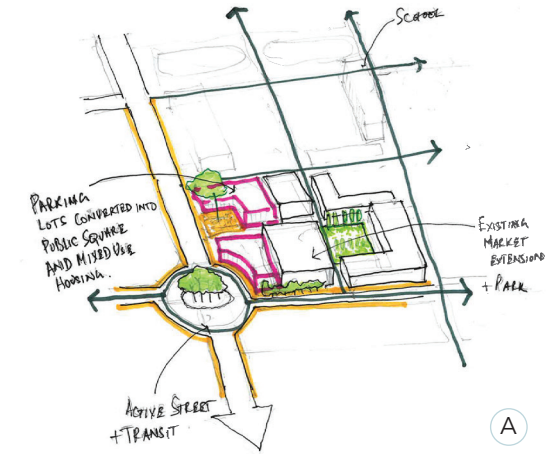 SCHOOL
PARKING
LOTS CONVERTED INTO
PUBLIC SQUARE
AND MIXED USE
HOUSING.
EXISTING
MARKET
EXTENSION
+ PARK
ACTIVE STREET
+ TRANSIT
A